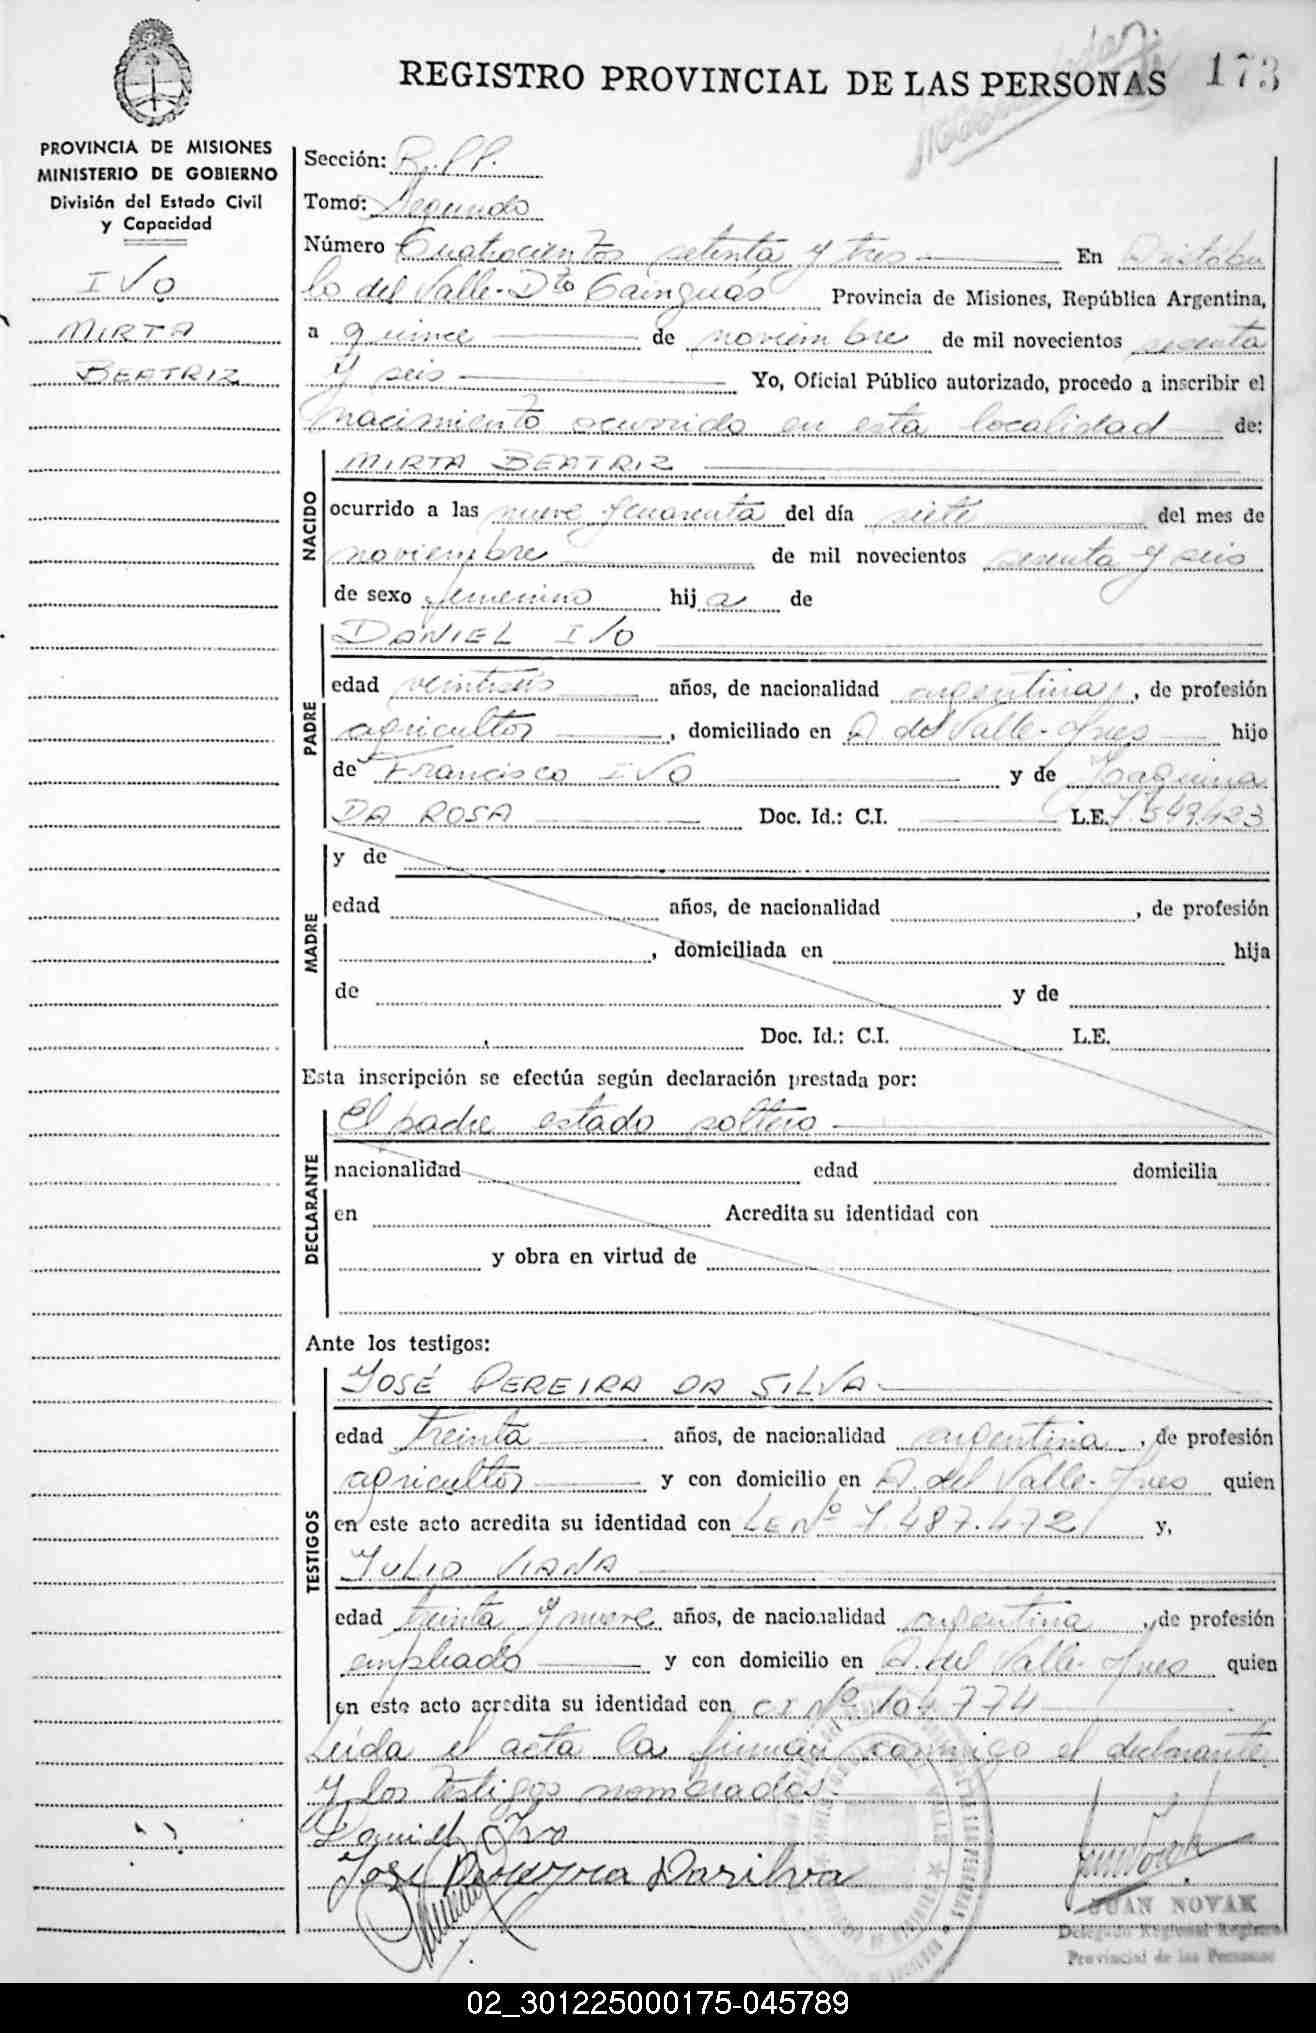 REGISTRO PROVINCIAL DE LAS PERSONAS 173
PROVINCIA DE MISIONES
MINISTERIO DE GOBIERNO
División del Estado Civil
y Capacidad
IVO
MIRTA
BEATRIZ
Sección: R.PP.
Tomo: Segundo
Número Cuatrocientos setenta y tres En Aristóbu
lo del Valle - Dto Cainguás Provincia de Misiones, República Argentina,
a quince de noviembre de mil novecientos sesenta
y seis Yo, Oficial Público autorizado, procedo a inscribir el
nacimiento ocurrido en esta localidad de:
NACIDO
MIRTA BEATRIZ
ocurrido a las nueve y cuarenta del día siete del mes de
noviembre de mil novecientos sesenta y seis
de sexo femenino hij a de
PADRE
DANIEL IVO
edad años, de nacionalidad argentina, de profesión
agricultor, domiciliado en A. del Valle - Mnes hijo
de Francisco IVO y de Joaquina
DA ROSA Doc. Id.: C.I. L.E. 7.549.423
MADRE
y de
edad años, de nacionalidad , de profesión
, domiciliada en hija
de y de
Doc. Id.: C.I. L.E.
Esta inscripción se efectúa según declaración prestada por:
DECLARANTE
El padre estado soltero
nacionalidad edad domicilia
en Acredita su identidad con
y obra en virtud de
Ante los testigos:
TESTIGOS
JOSÉ PEREIRA DA SILVA
edad treinta años, de nacionalidad argentina, de profesión
agricultor y con domicilio en A. del Valle - Mnes quien
en este acto acredita su identidad con LE Nº 7.487.472 y,
JULIO VIANA
edad treinta y nueve años, de nacionalidad argentina, de profesión
empleado y con domicilio en A. del Valle - Mnes quien
en este acto acredita su identidad con CI Nº 104.774
Leída el acta la firman conmigo el declarante
y los testigos nombrados.
Daniel Ivo
JUAN NOVAK
Delegado Regional Registro
Provincial de las Personas
02_301225000175-045789